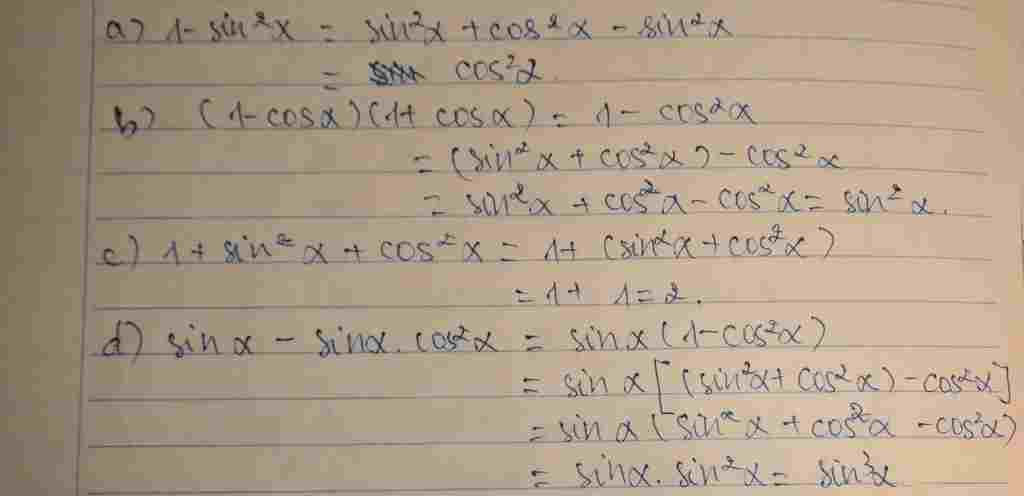 a) 1 - sin²α = sin²α + cos²α - sin²α
= cos²α.
b) (1 - cosα)(1 + cosα) = 1 - cos²α
= (sin²α + cos²α) - cos²α
= sin²α + cos²α - cos²α = sin²α.
c) 1 + sin²α + cos²α = 1 + (sin²α + cos²α)
= 1 + 1 = 2.
d) sinα - sinα.cos²α = sinα(1 - cos²α)
= sinα[(sin²α + cos²α) - cos²α]
= sinα(sin²α + cos²α - cos²α)
= sinα.sin²α = sin³α